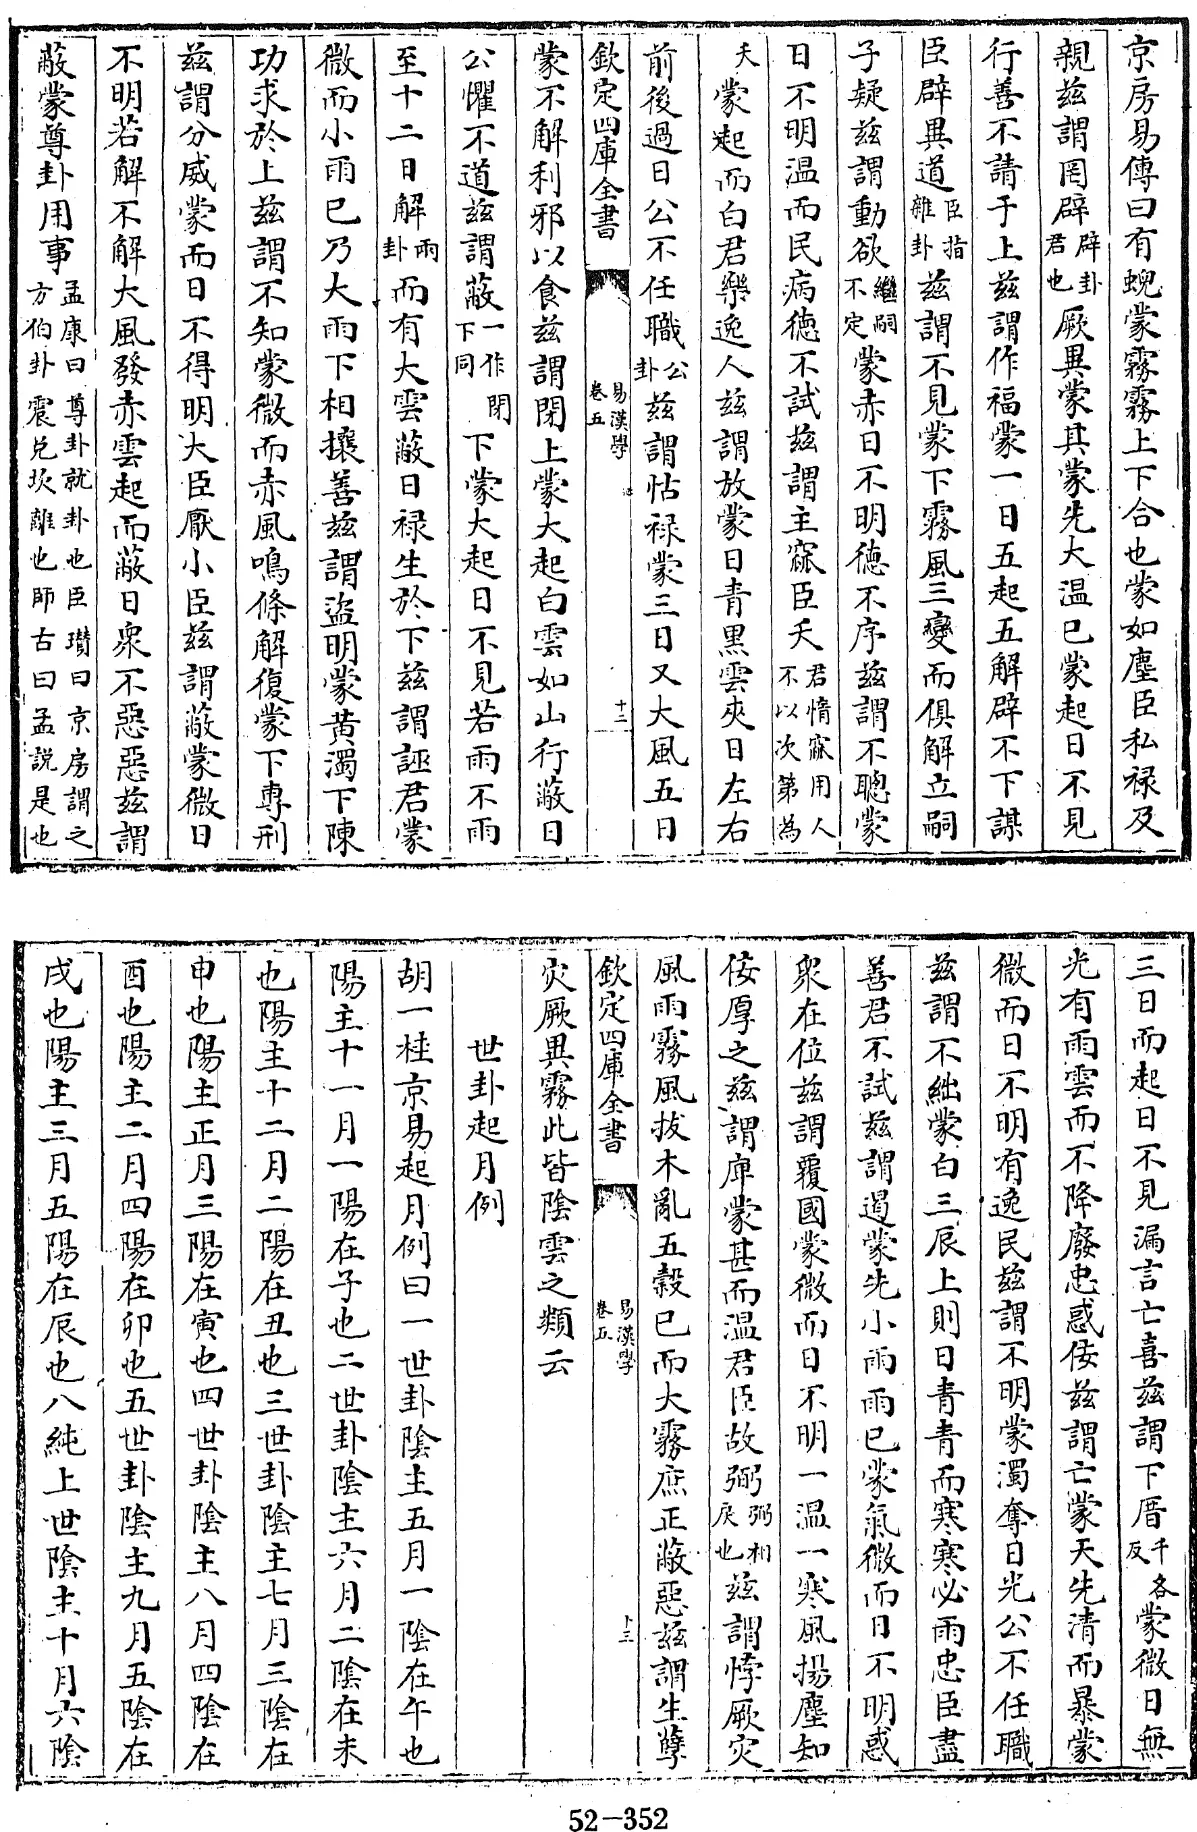 京房易傳曰有蜺蒙霧霧上下合也蒙如塵臣私禄及
親兹謂罔辟辟卦君也厥異蒙其蒙先大温已蒙起日不見
行善不請于上兹謂作福蒙一日五起五解辟不下謀
臣辟異道臣指雜卦兹謂不見蒙下霧風三變而俱解立嗣
子疑兹謂動欲繼嗣不定蒙赤日不明德不序兹謂不聰蒙
日不明温而民病德不試兹謂主窳臣夭君惰窳用人不以次第為
夭蒙起而白君樂逸人兹謂放蒙日青黑雲夾日左右
前後過日公不任職公卦兹謂怙禄蒙三日又大風五日
欽定四庫全書
易漢學
卷五
十二
蒙不解利邪以食兹謂閉上蒙大起白雲如山行蔽日
公懼不道兹謂蔽一作閉下同下蒙大起日不見若雨不雨
至十二日解雨卦而有大雲蔽日禄生於下兹謂誣君蒙
微而小雨已乃大雨下相攘善兹謂盜明蒙黄濁下陳
功求於上兹謂不知蒙微而赤風鳴條解復蒙下專刑
兹謂分威蒙而日不得明大臣厭小臣兹謂蔽蒙微日
不明若解不解大風發赤雲起而蔽日衆不惡惡兹謂
蔽蒙尊卦用事孟康曰尊卦就卦也臣瓚曰京房謂之方伯卦震兑坎離也師古曰孟説是也
三日而起日不見漏言亡喜兹謂下厝千各反蒙微日無
光有雨雲而不降廢忠惑佞兹謂亡蒙天先清而暴蒙
微而日不明有逸民兹謂不明蒙濁奪日光公不任職
兹謂不絀蒙白三辰上則日青青而寒寒必雨忠臣盡
善君不試兹謂遏蒙先小雨雨已蒙氣微而日不明惑
衆在位兹謂覆國蒙微而日不明一温一寒風揚塵知
佞厚之兹謂庳蒙甚而温君臣故弼弼相戾也兹謂悖厥災
風雨霧風拔木亂五穀已而大霧庶正蔽惡兹謂生孽
欽定四庫全書
易漢學
卷五
十三
灾厥異霧此皆陰雲之類云
世卦起月例
胡一桂京易起月例曰一世卦陰主五月一陰在午也
陽主十一月一陽在子也二世卦陰主六月二陰在未
也陽主十二月二陽在丑也三世卦陰主七月三陰在
申也陽主正月三陽在寅也四世卦陰主八月四陰在
酉也陽主二月四陽在卯也五世卦陰主九月五陰在
戌也陽主三月五陽在辰也八純上世陰主十月六陰
52-352